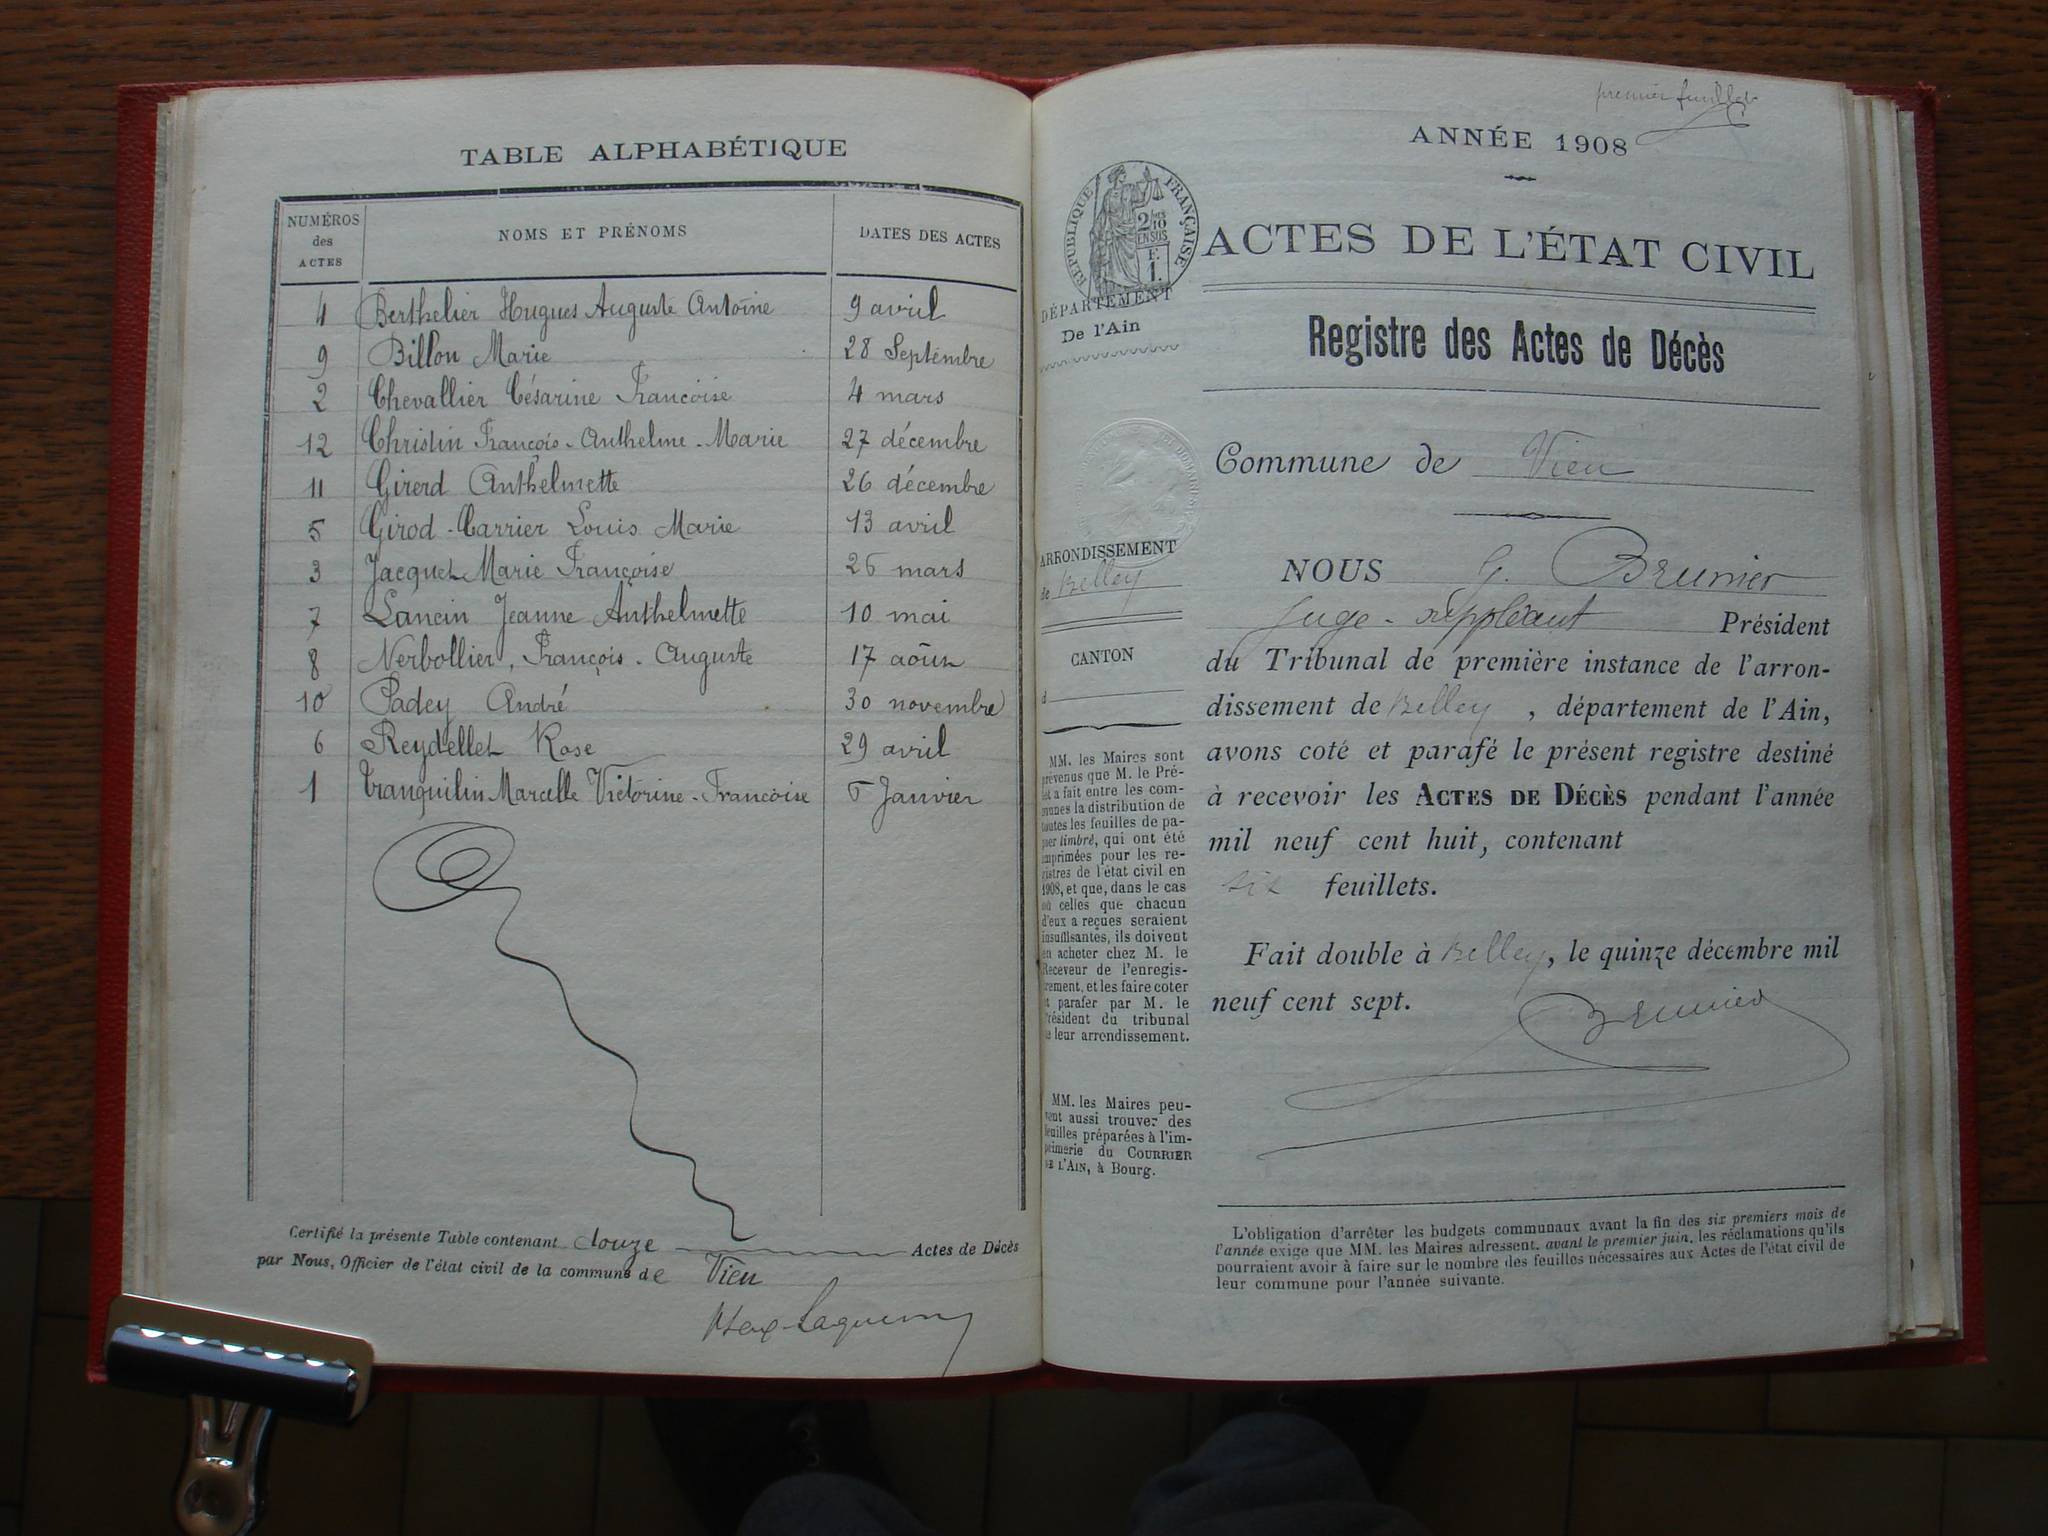 TABLE ALPHABÉTIQUE
NUMÉROS des ACTES NOMS ET PRÉNOMS DATES DES ACTES
4 Berthelier Hugues Auguste Antoine 9 avril
9 Billon Marie 28 Septembre
2 Chevallier Césarine Francoise 4 mars
12 Christin François-Anthelme-Marie 27 décembre
11 Girerd Anthelmette 26 décembre
5 Girod-Carrier Louis Marie 13 avril
3 Jacquet Marie Françoise mars
7 Lancin Jeanne Anthelmette 10 mai
8 Nerbollier, François-Auguste 17 août
10 Padey André 30 novembre
6 Reydellet Rose 29 avril
1 Tranquilin Marcelle Victorine-Francoise Janvier
Certifié la présente Table contenant douze Actes de Décès
par Nous, Officier de l'état civil de la commune de Vieu
premier feuillet
ANNÉE 1908
RÉPUBLIQUE FRANÇAISE
2/10 EN SUS
F. 1.
ACTES DE L'ÉTAT CIVIL
DÉPARTEMENT
De l'Ain
Registre des Actes de Décès
Commune de Vieu
ARRONDISSEMENT
de Belley
CANTON
d
MM. les Maires sont
prévenus que M. le Pré-
fet a fait entre les com-
munes la distribution de
toutes les feuilles de pa-
pier timbré, qui ont été
imprimées pour les re-
gistres de l'état civil en
1908, et que, dans le cas
où celles que chacun
d'eux a reçues seraient
insuffisantes, ils doivent
en acheter chez M. le
Receveur de l'enregis-
trement, et les faire coter
et parafer par M. le
Président du tribunal
de leur arrondissement.
MM. les Maires peu-
vent aussi trouver des
feuilles préparées à l'im-
primerie du COURRIER
DE L'AIN, à Bourg.
NOUS G. Brunier
Juge-suppléant Président
du Tribunal de première instance de l'arron-
dissement de Belley, département de l'Ain,
avons coté et parafé le présent registre destiné
à recevoir les ACTES DE DÉCÈS pendant l'année
mil neuf cent huit, contenant
six feuillets.
Fait double à Belley, le quinze décembre mil
neuf cent sept.
Brunier
L'obligation d'arrêter les budgets communaux avant la fin des six premiers mois de
l'année exige que MM. les Maires adressent, avant le premier juin, les réclamations qu'ils
pourraient avoir à faire sur le nombre des feuilles nécessaires aux Actes de l'état civil de
leur commune pour l'année suivante.